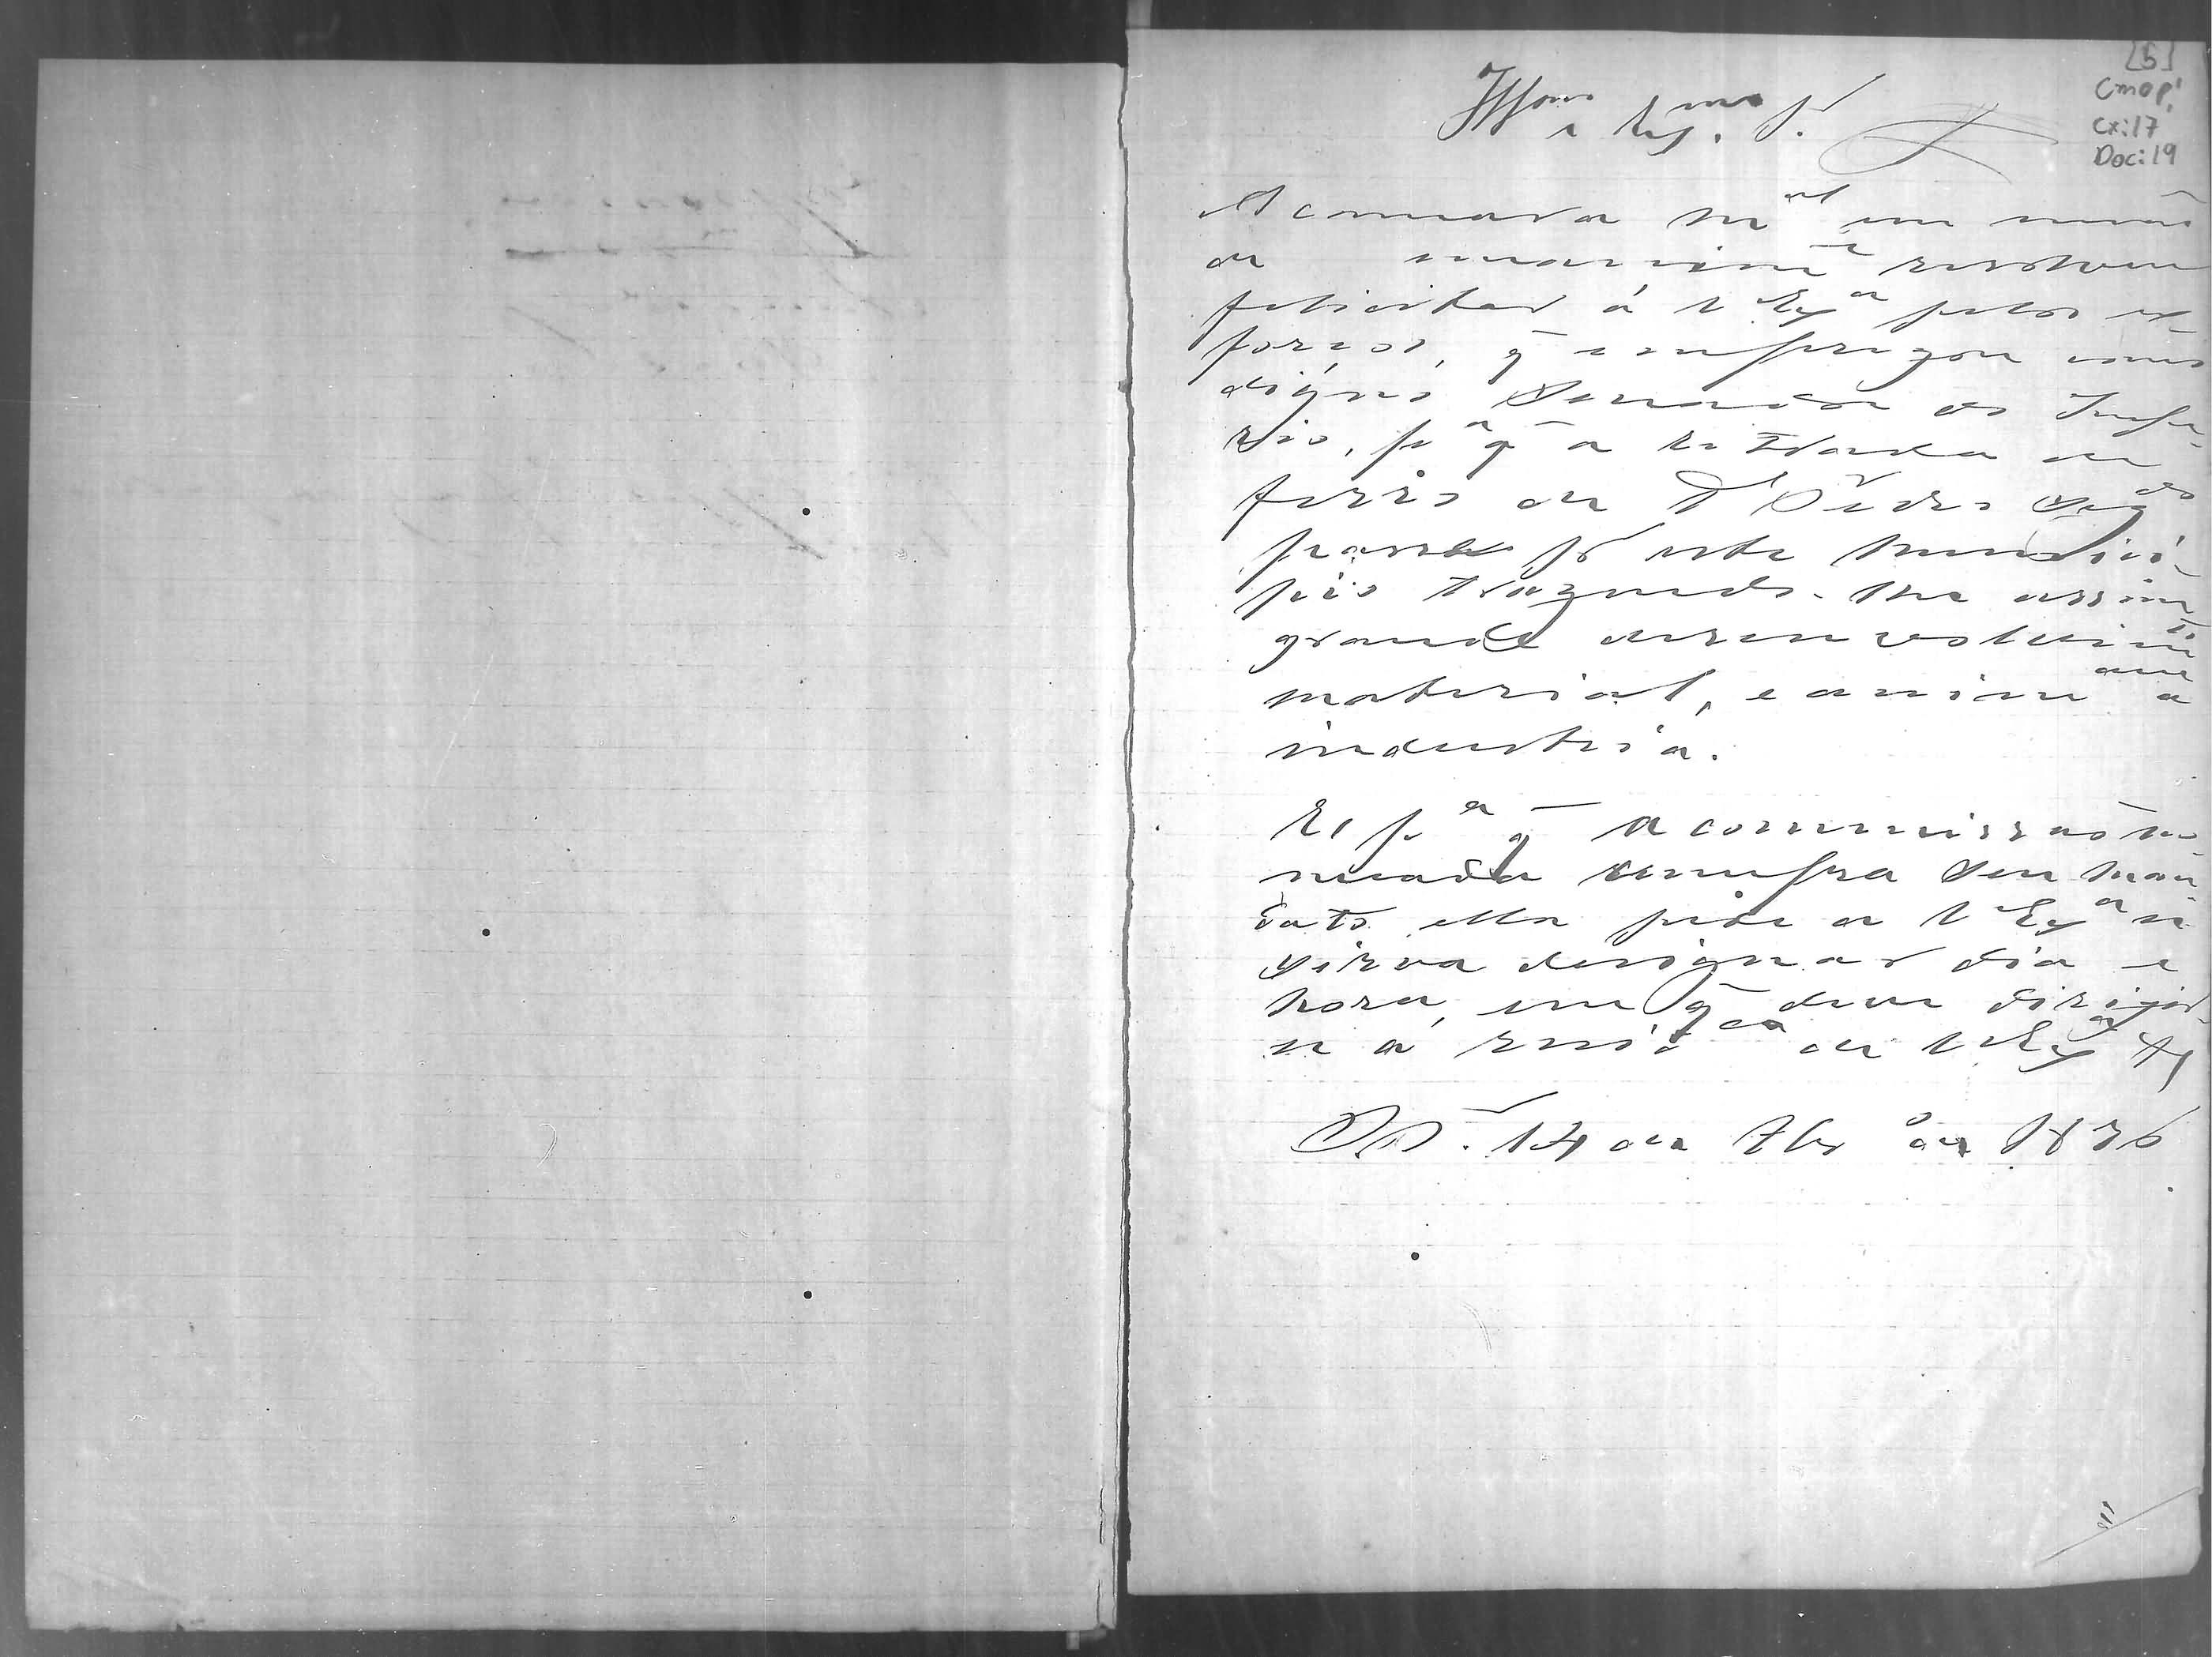 [5]
CmOP!
Cx:17
Doc:19
Illmo e Exmo Sr
A camara Mal em
de resolveu
felicitar á V Exa pelos es-
forços, q̃ empregou como
digno Senador do Impe-
rio, pa q̃ a Estrada de
ferro de D Pedro Segdo
passe pr este Munici-
pio trazendo-lhe assim
grande desenvolvimto
material, e anime a
industria.
E pa q̃ a commissaõ no-
meada cumpra seu man-
dato ella pede a V Exa se
sirva designar dia e
hora, em q̃ deve dirigir-
se á residca de V Exa
OP. 14 de 7bro de 1876